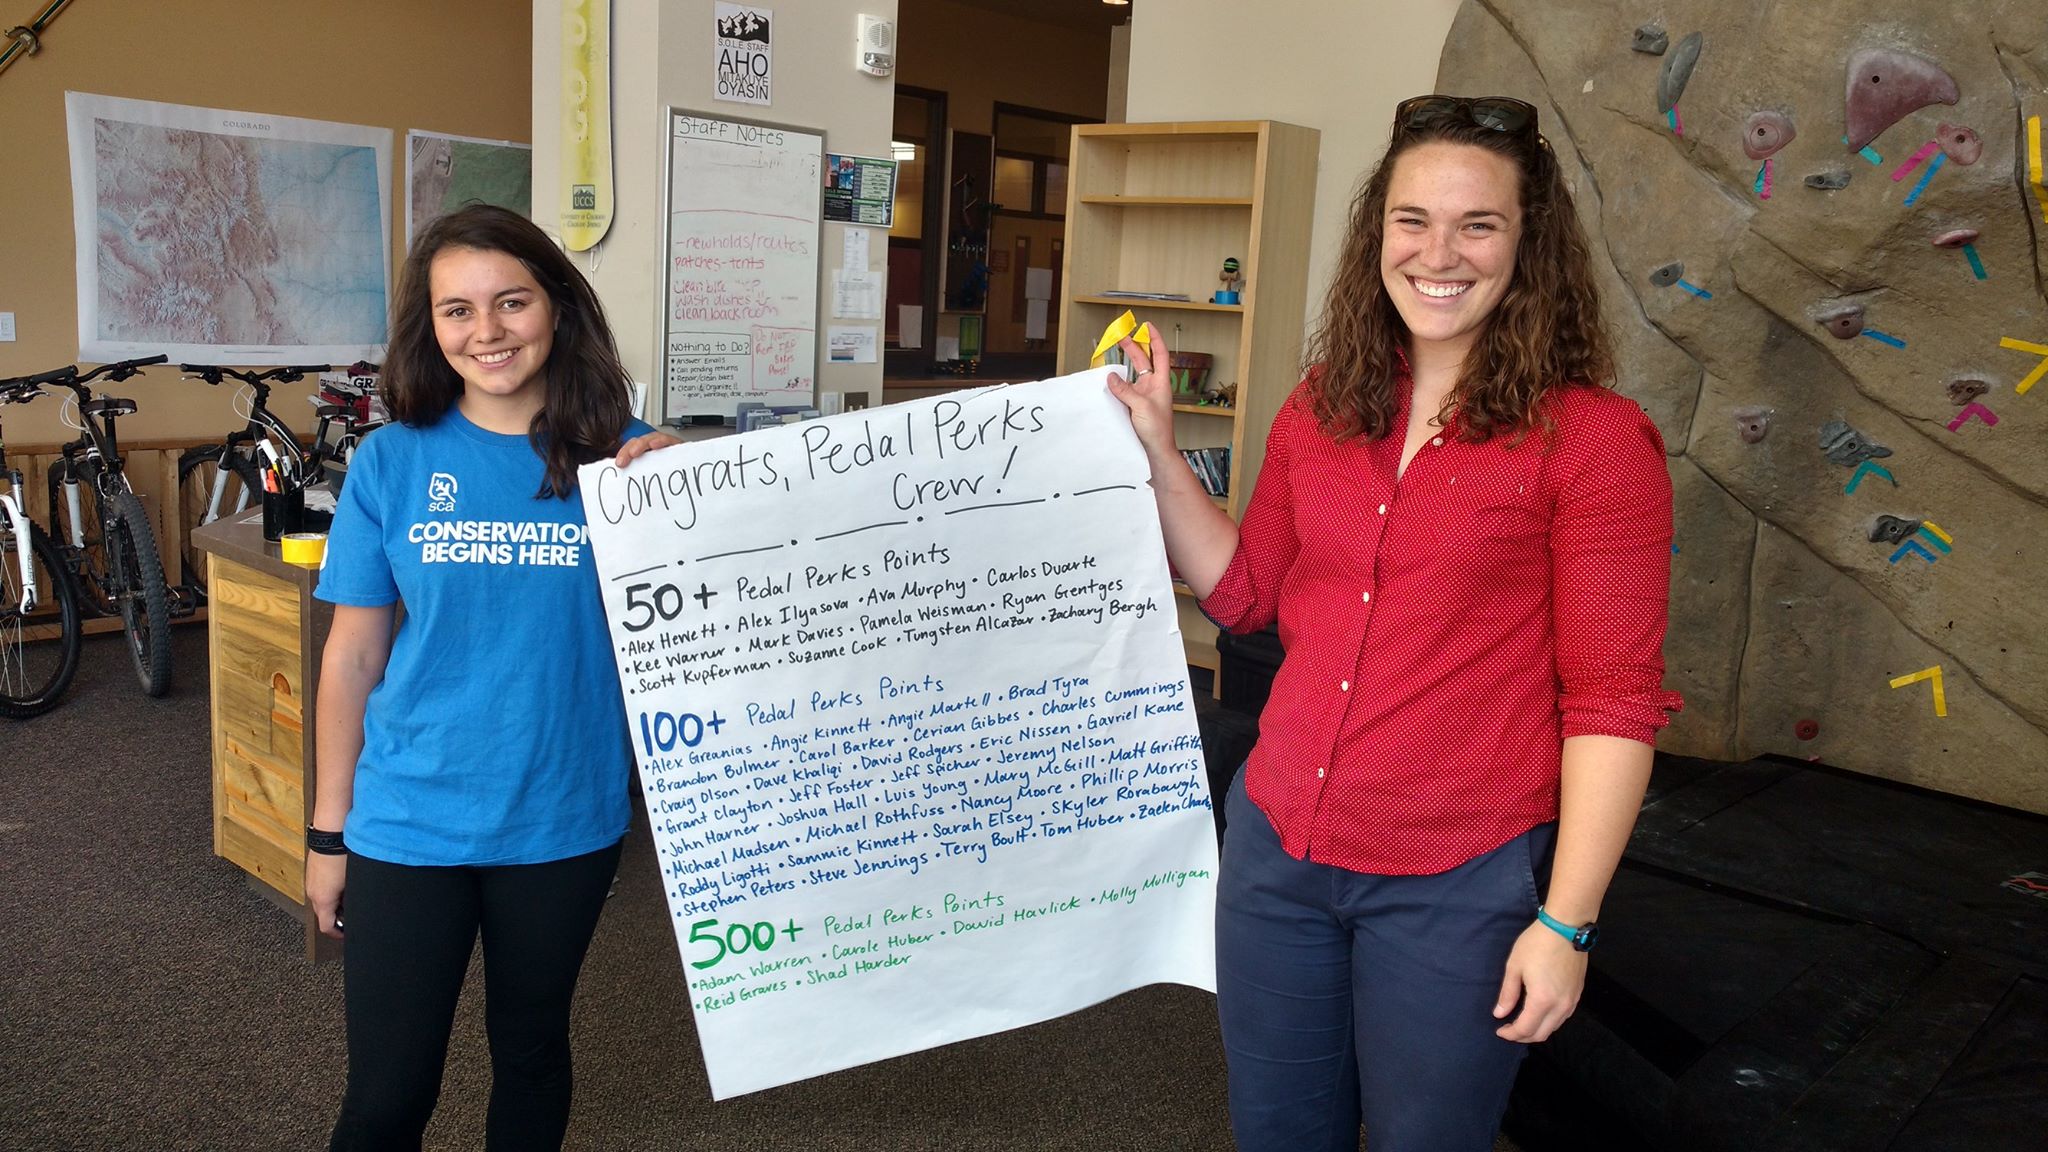 COLORADO
UCCS
S.O.L.E. STAFF
AHO
MITAKUYE
OYASIN
FIRE
Staff Notes
-new holds/routes
patches-tents
clean bike
wash dishes
clean back room
Nothing to Do?
Answer Emails
Call pending returns
Repair/clean bikes
Clean & Organize!!
- gear, workshop, desk, computer
Do NOT
Bikes
Please!
sca
CONSERVATION
BEGINS HERE
Congrats, Pedal Perks
Crew!
50+ Pedal Perks Points
• Alex Hewett • Alex Ilyasova • Ava Murphy • Carlos Duarte
• Kee Warner • Mark Davies • Pamela Weisman • Ryan Gentges
• Scott Kupferman • Suzanne Cook • Tungsten Alcazar • Zachary Bergh
100+ Pedal Perks Points
• Alex Greanias • Angie Kinnett • Angie Martell • Brad Tyra
• Brandon Bulmer • Carol Barker • Cerian Gibbes • Charles Cummings
• Craig Olson • Dave Khaliqi • David Rodgers • Eric Nissen • Gavriel Kane
• Grant Clayton • Jeff Foster • Jeff Spicher • Jeremy Nelson
• John Harner • Joshua Hall • Luis Young • Mary McGill • Matt Griffith
• Michael Madsen • Michael Rothfuss • Nancy Moore • Phillip Morris
• Roddy Ligotti • Sammie Kinnett • Sarah Elsey • Skyler Rorabaugh
• Stephen Peters • Steve Jennings • Terry Boult • Tom Huber • Zaelen
500+ Pedal Perks Points
• Adam Warren • Carole Huber • David Havlick • Molly Mulligan
• Reid Graves • Shad Harder